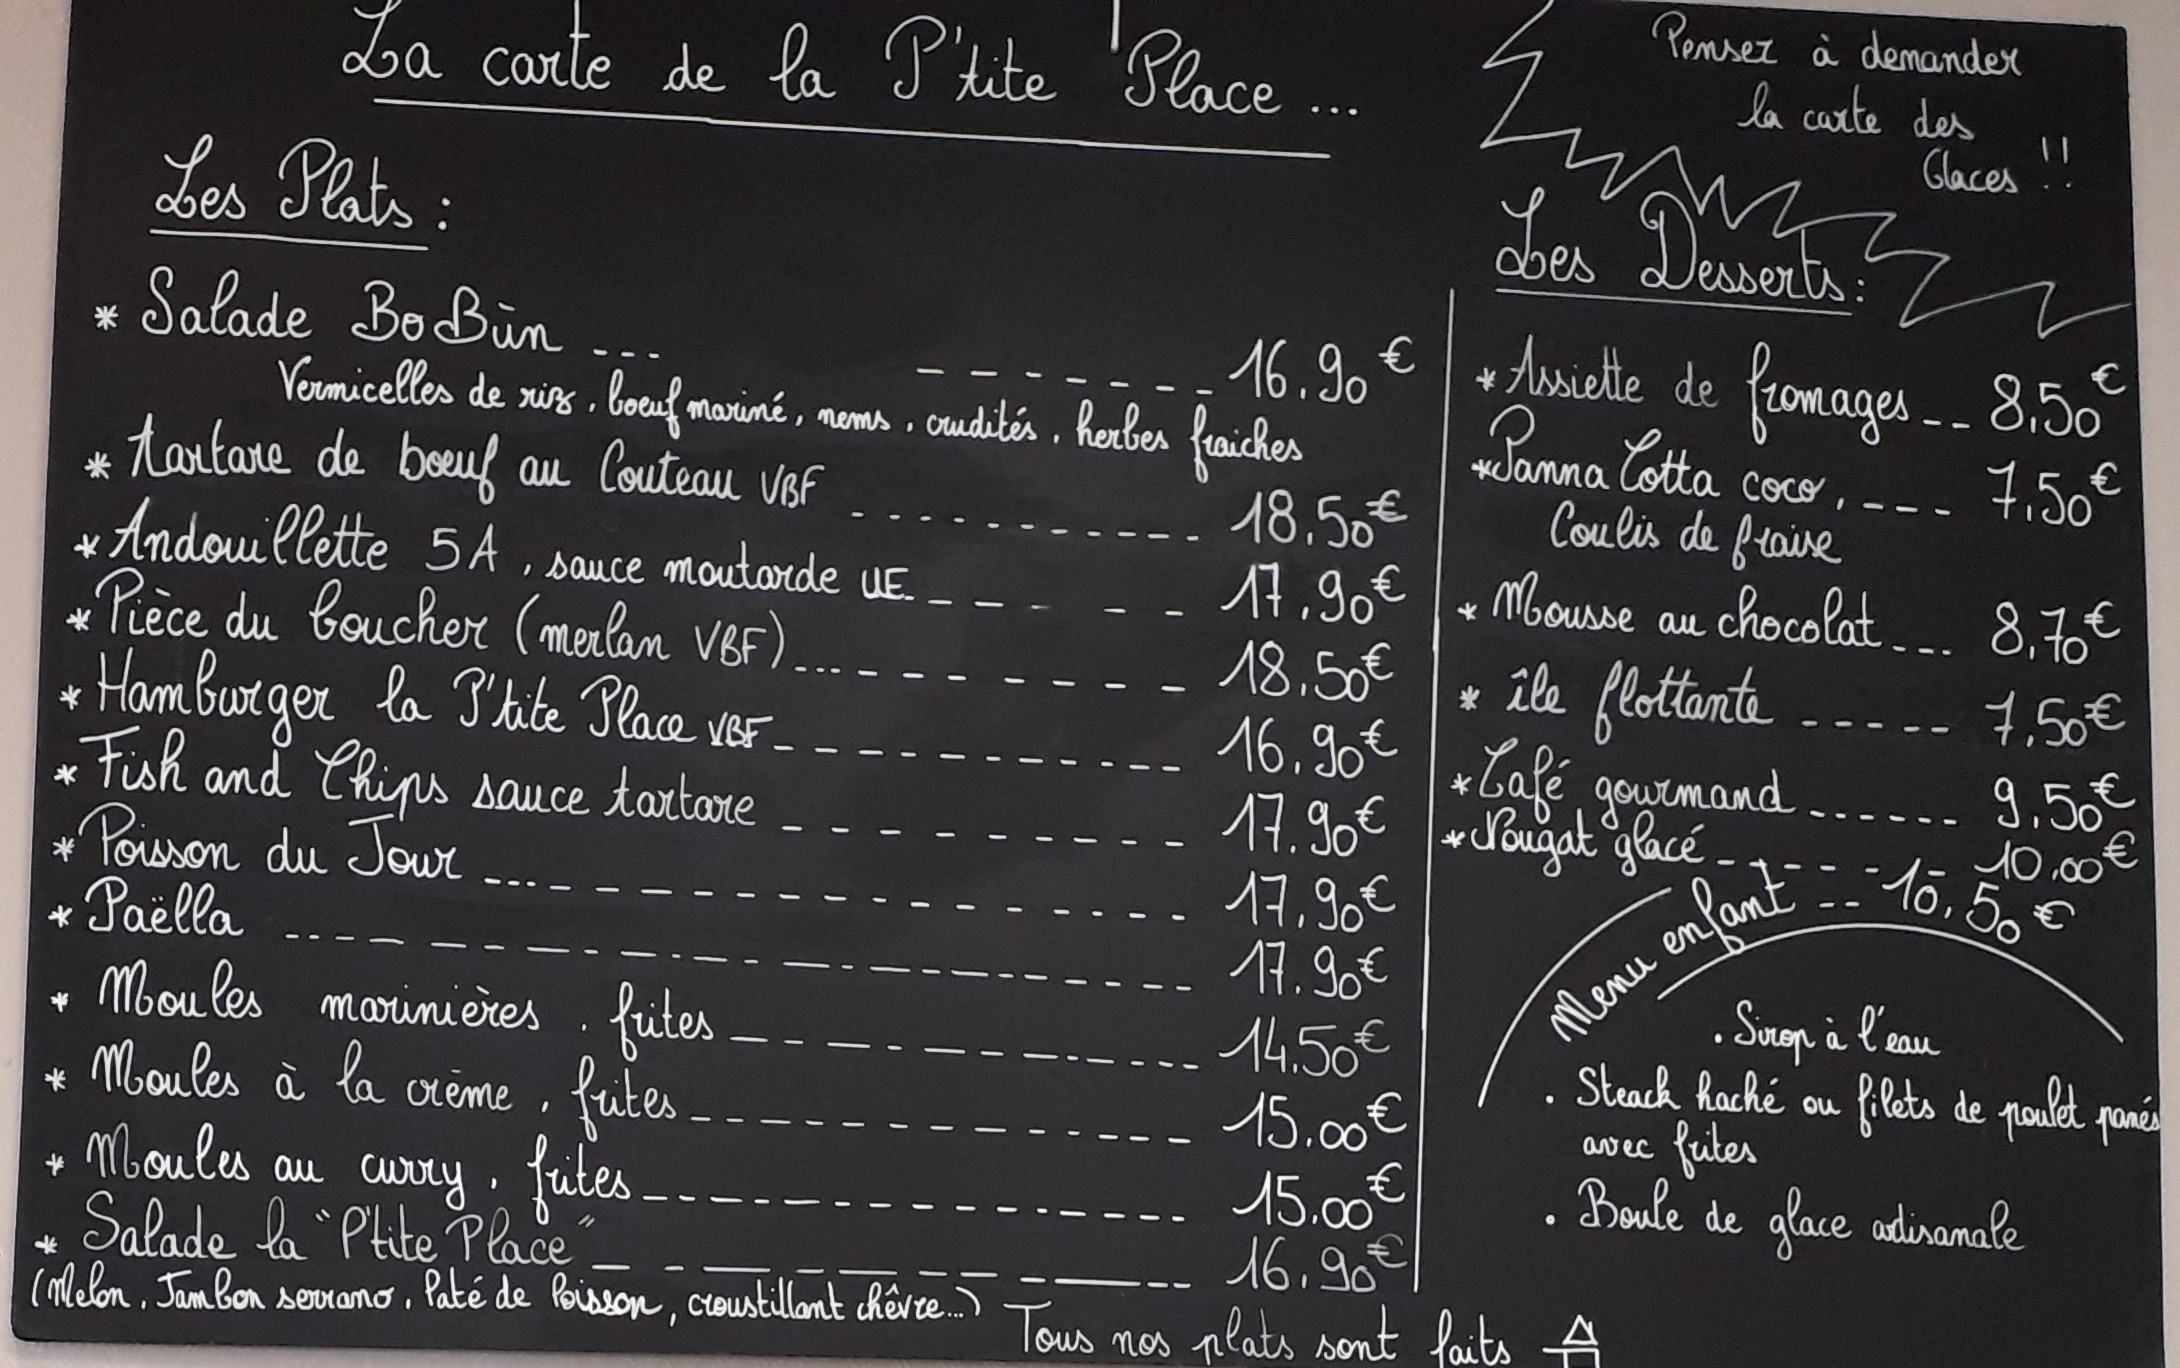 La carte de la P'tite Place ...
Les Plats :
* Salade BoBùn --- ------- 16.90€
Vermicelles de riz, boeuf mariné, nems, crudités, herbes fraiches
* tartare de boeuf au Couteau VBF ---------- 18,50€
* Andouillette 5A, sauce moutarde UE ------ 17,90€
* Pièce du boucher (merlan VBF) ...-------- 18,50€
* Hamburger la P'tite Place VBF ----------- 16,90€
* Fish and Chips sauce tartare --------- 17.90€
* Poisson du Jour ...--------------- 17,90€
* Paëlla ------------------ 17.90€
* Moules marinières, frites ------------ 14,50€
* Moules à la crème, frites ------------- 15,00€
* Moules au curry, frites -------------- 15,00€
* Salade la "P'tite Place" ---------- 16,90€
(Melon, Jambon serrano, Paté de Poisson, croustillant chêvre...)
Tous nos plats sont faits
Pensez à demander
la carte des
Glaces !!
Les Desserts :
* Assiette de fromages -- 8,50€
* Panna Cotta coco, --- 7,50€
Coulis de fraise
* Mousse au chocolat --- 8,70€
* île flottante ----- 7,50€
* Café gourmand ------ 9,50€
* Nougat glacé ------ 10,00€
Menu enfant -- 10,50€
. Sirop à l'eau
. Steack haché ou filets de poulet panés
avec frites
. Boule de glace artisanale